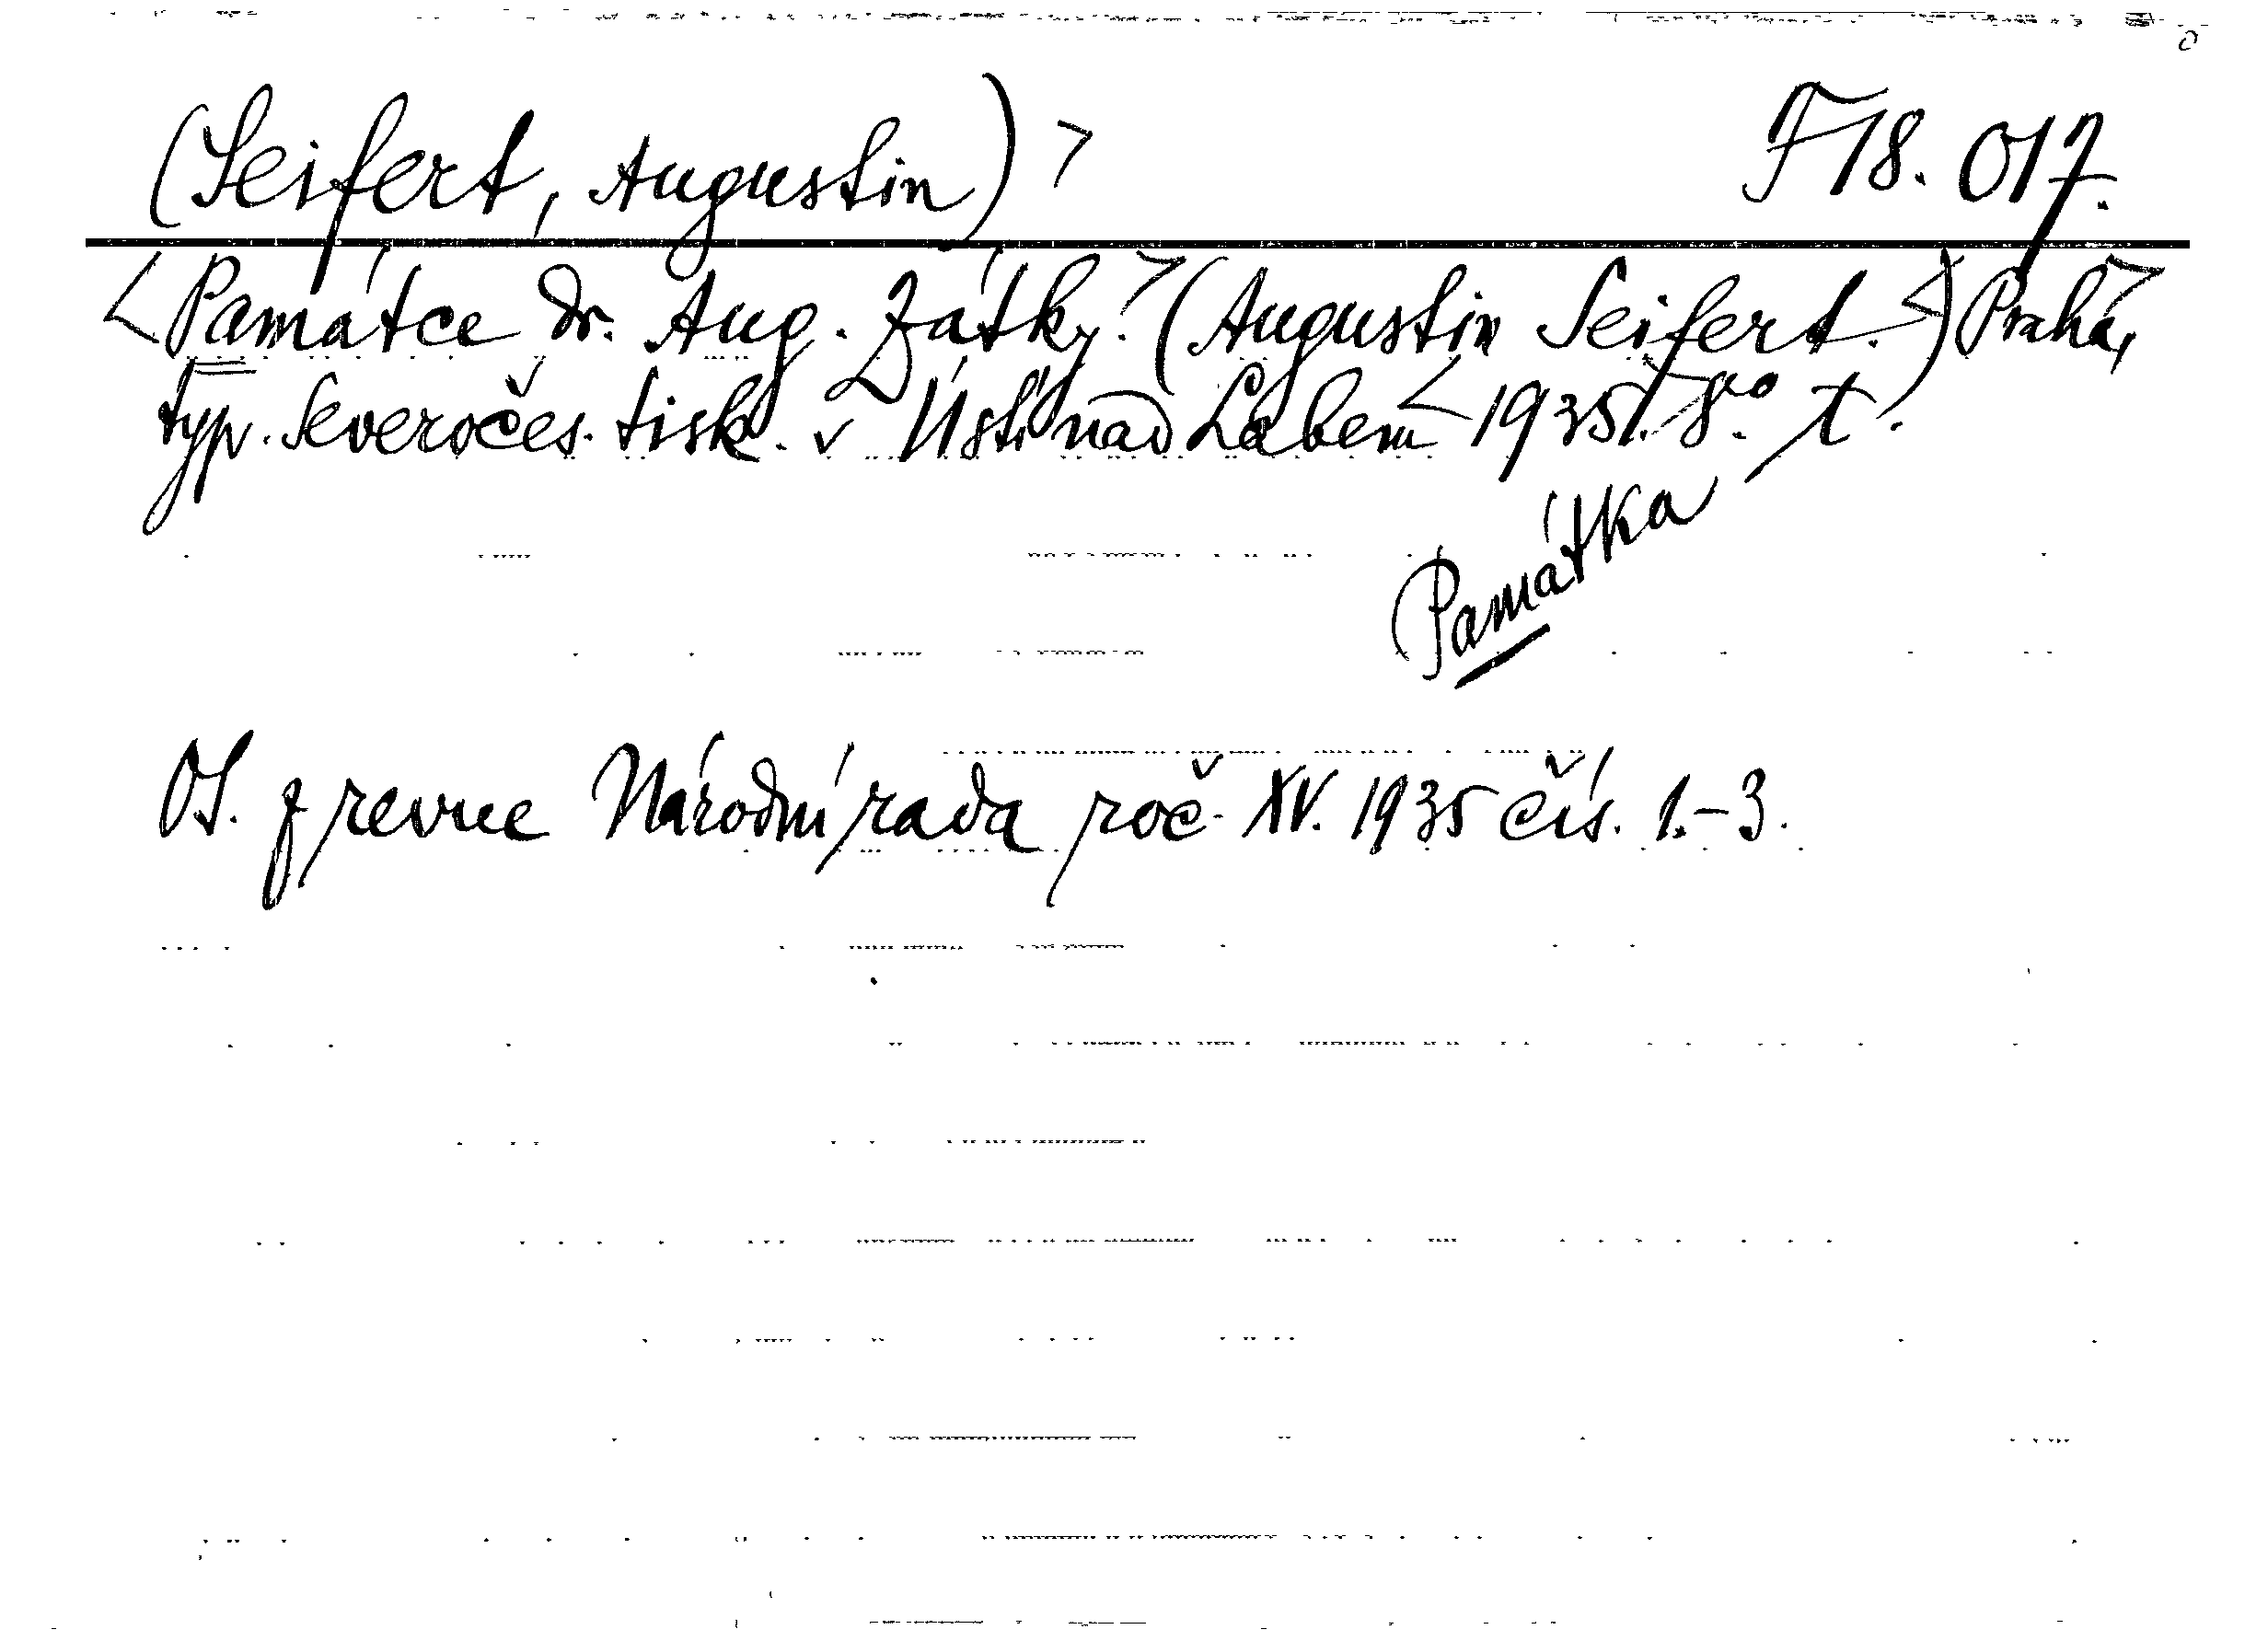 (Seifert, Augustin) > F 18.017.
<Památce dr. Aug. Zátky.> (Augustin Seifert.<) Praha>,
typ. Severočes. tisk. v Ústí nad Labem < 1935>. 8°. t.
Památka
OS. z revue Národní rada roč. XV. 1935 čís. 1.-3.